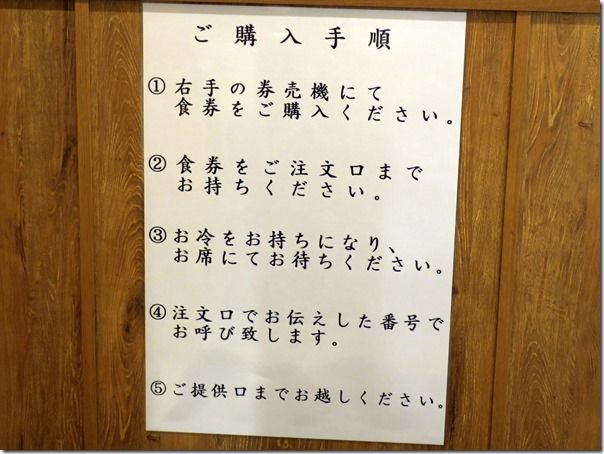 ご購入手順
①右手の券売機にて
食券をご購入ください。
②食券をご注文口まで
お持ちください。
③お冷をお持ちになり、
お席にてお待ちください。
④注文口でお伝えした番号で
お呼び致します。
⑤ご提供口までお越しください。